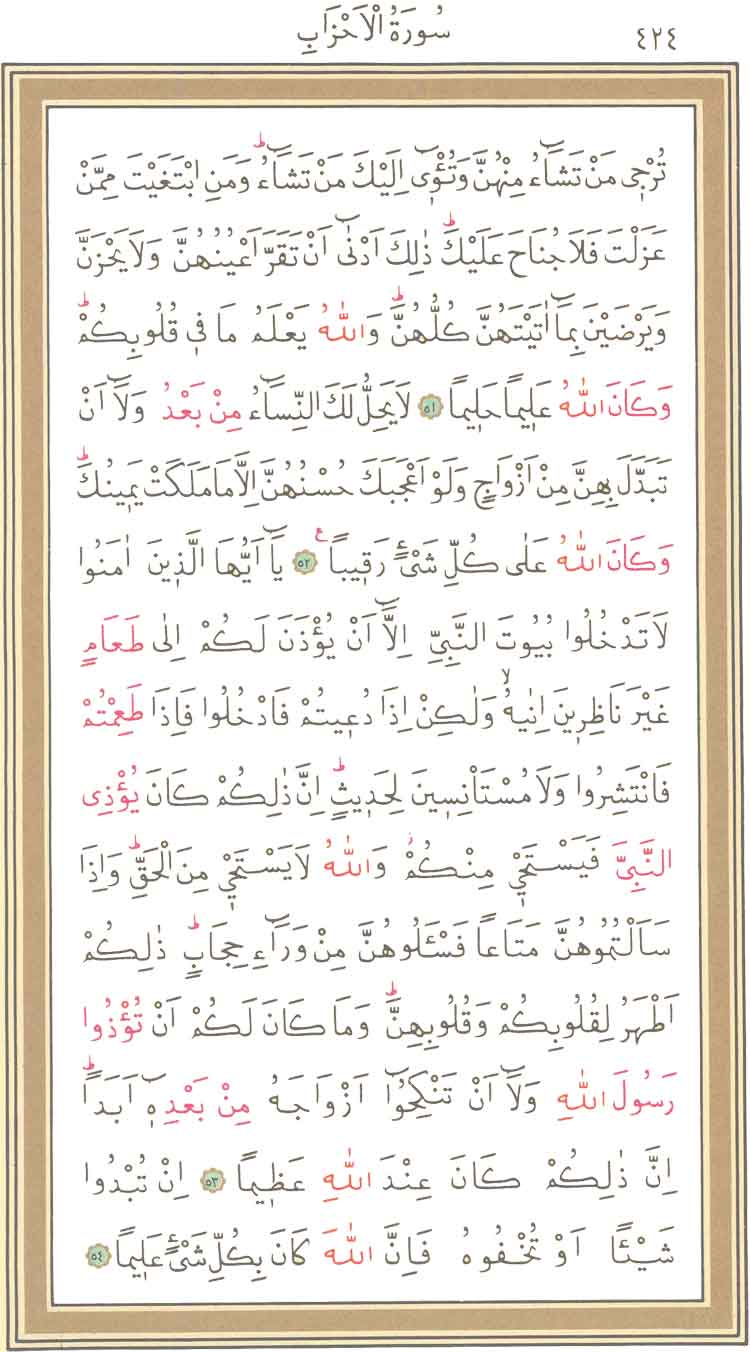 سُورَةُ الْاَحْزَابِ ٤٢٤
تُرْجٖى مَنْ تَشَٓاءُ مِنْهُنَّ وَتُـْٔوٖٓى اِلَيْكَ مَنْ تَشَٓاءُؕ وَمَنِ ابْتَغَيْتَ مِمَّنْ
عَزَلْتَ فَلَا جُنَاحَ عَلَيْكَؕ ذٰلِكَ اَدْنٰٓى اَنْ تَقَرَّ اَعْيُنُهُنَّ وَلَا يَحْزَنَّ
وَيَرْضَيْنَ بِمَٓا اٰتَيْتَهُنَّ كُلُّهُنَّؕ وَاللّٰهُ يَعْلَمُ مَا فٖى قُلُوبِكُمْؕ
وَكَانَ اللّٰهُ عَلٖيماً حَلٖيماً ﴿٥١﴾ لَا يَحِلُّ لَكَ النِّسَٓاءُ مِنْ بَعْدُ وَلَٓا اَنْ
تَبَدَّلَ بِهِنَّ مِنْ اَزْوَاجٍ وَلَوْ اَعْجَبَكَ حُسْنُهُنَّ اِلَّا مَا مَلَكَتْ يَمٖينُكَؕ
وَكَانَ اللّٰهُ عَلٰى كُلِّ شَیْءٍ رَقٖيباً ﴿٥٢﴾ ع يَٓا اَيُّهَا الَّذٖينَ اٰمَنُوا
لَا تَدْخُلُوا بُيُوتَ النَّبِیِّ اِلَّٓا اَنْ يُؤْذَنَ لَكُمْ اِلٰى طَعَامٍ
غَيْرَ نَاظِرٖينَ اِنٰيهُۙ وَلٰكِنْ اِذَا دُعٖيتُمْ فَادْخُلُوا فَاِذَا طَعِمْتُمْ
فَانْتَشِرُوا وَلَا مُسْتَأْنِسٖينَ لِحَدٖيثٍؕ اِنَّ ذٰلِكُمْ كَانَ يُؤْذِى
النَّبِیَّ فَيَسْتَحْيٖ مِنْكُمْؗ وَاللّٰهُ لَا يَسْتَحْيٖ مِنَ الْحَقِّؕ وَاِذَا
سَاَلْتُمُوهُنَّ مَتَاعاً فَسْـَٔلُوهُنَّ مِنْ وَرَٓاءِ حِجَابٍؕ ذٰلِكُمْ
اَطْهَرُ لِقُلُوبِكُمْ وَقُلُوبِهِنَّؕ وَمَا كَانَ لَكُمْ اَنْ تُؤْذُوا
رَسُولَ اللّٰهِ وَلَٓا اَنْ تَنْكِحُٓوا اَزْوَاجَهُ مِنْ بَعْدِهٖٓ اَبَداًؕ
اِنَّ ذٰلِكُمْ كَانَ عِنْدَ اللّٰهِ عَظٖيماً ﴿٥٣﴾ اِنْ تُبْدُوا
شَيْـًٔا اَوْ تُخْفُوهُ فَاِنَّ اللّٰهَ كَانَ بِكُلِّ شَیْءٍ عَلٖيماً ﴿٥٤﴾